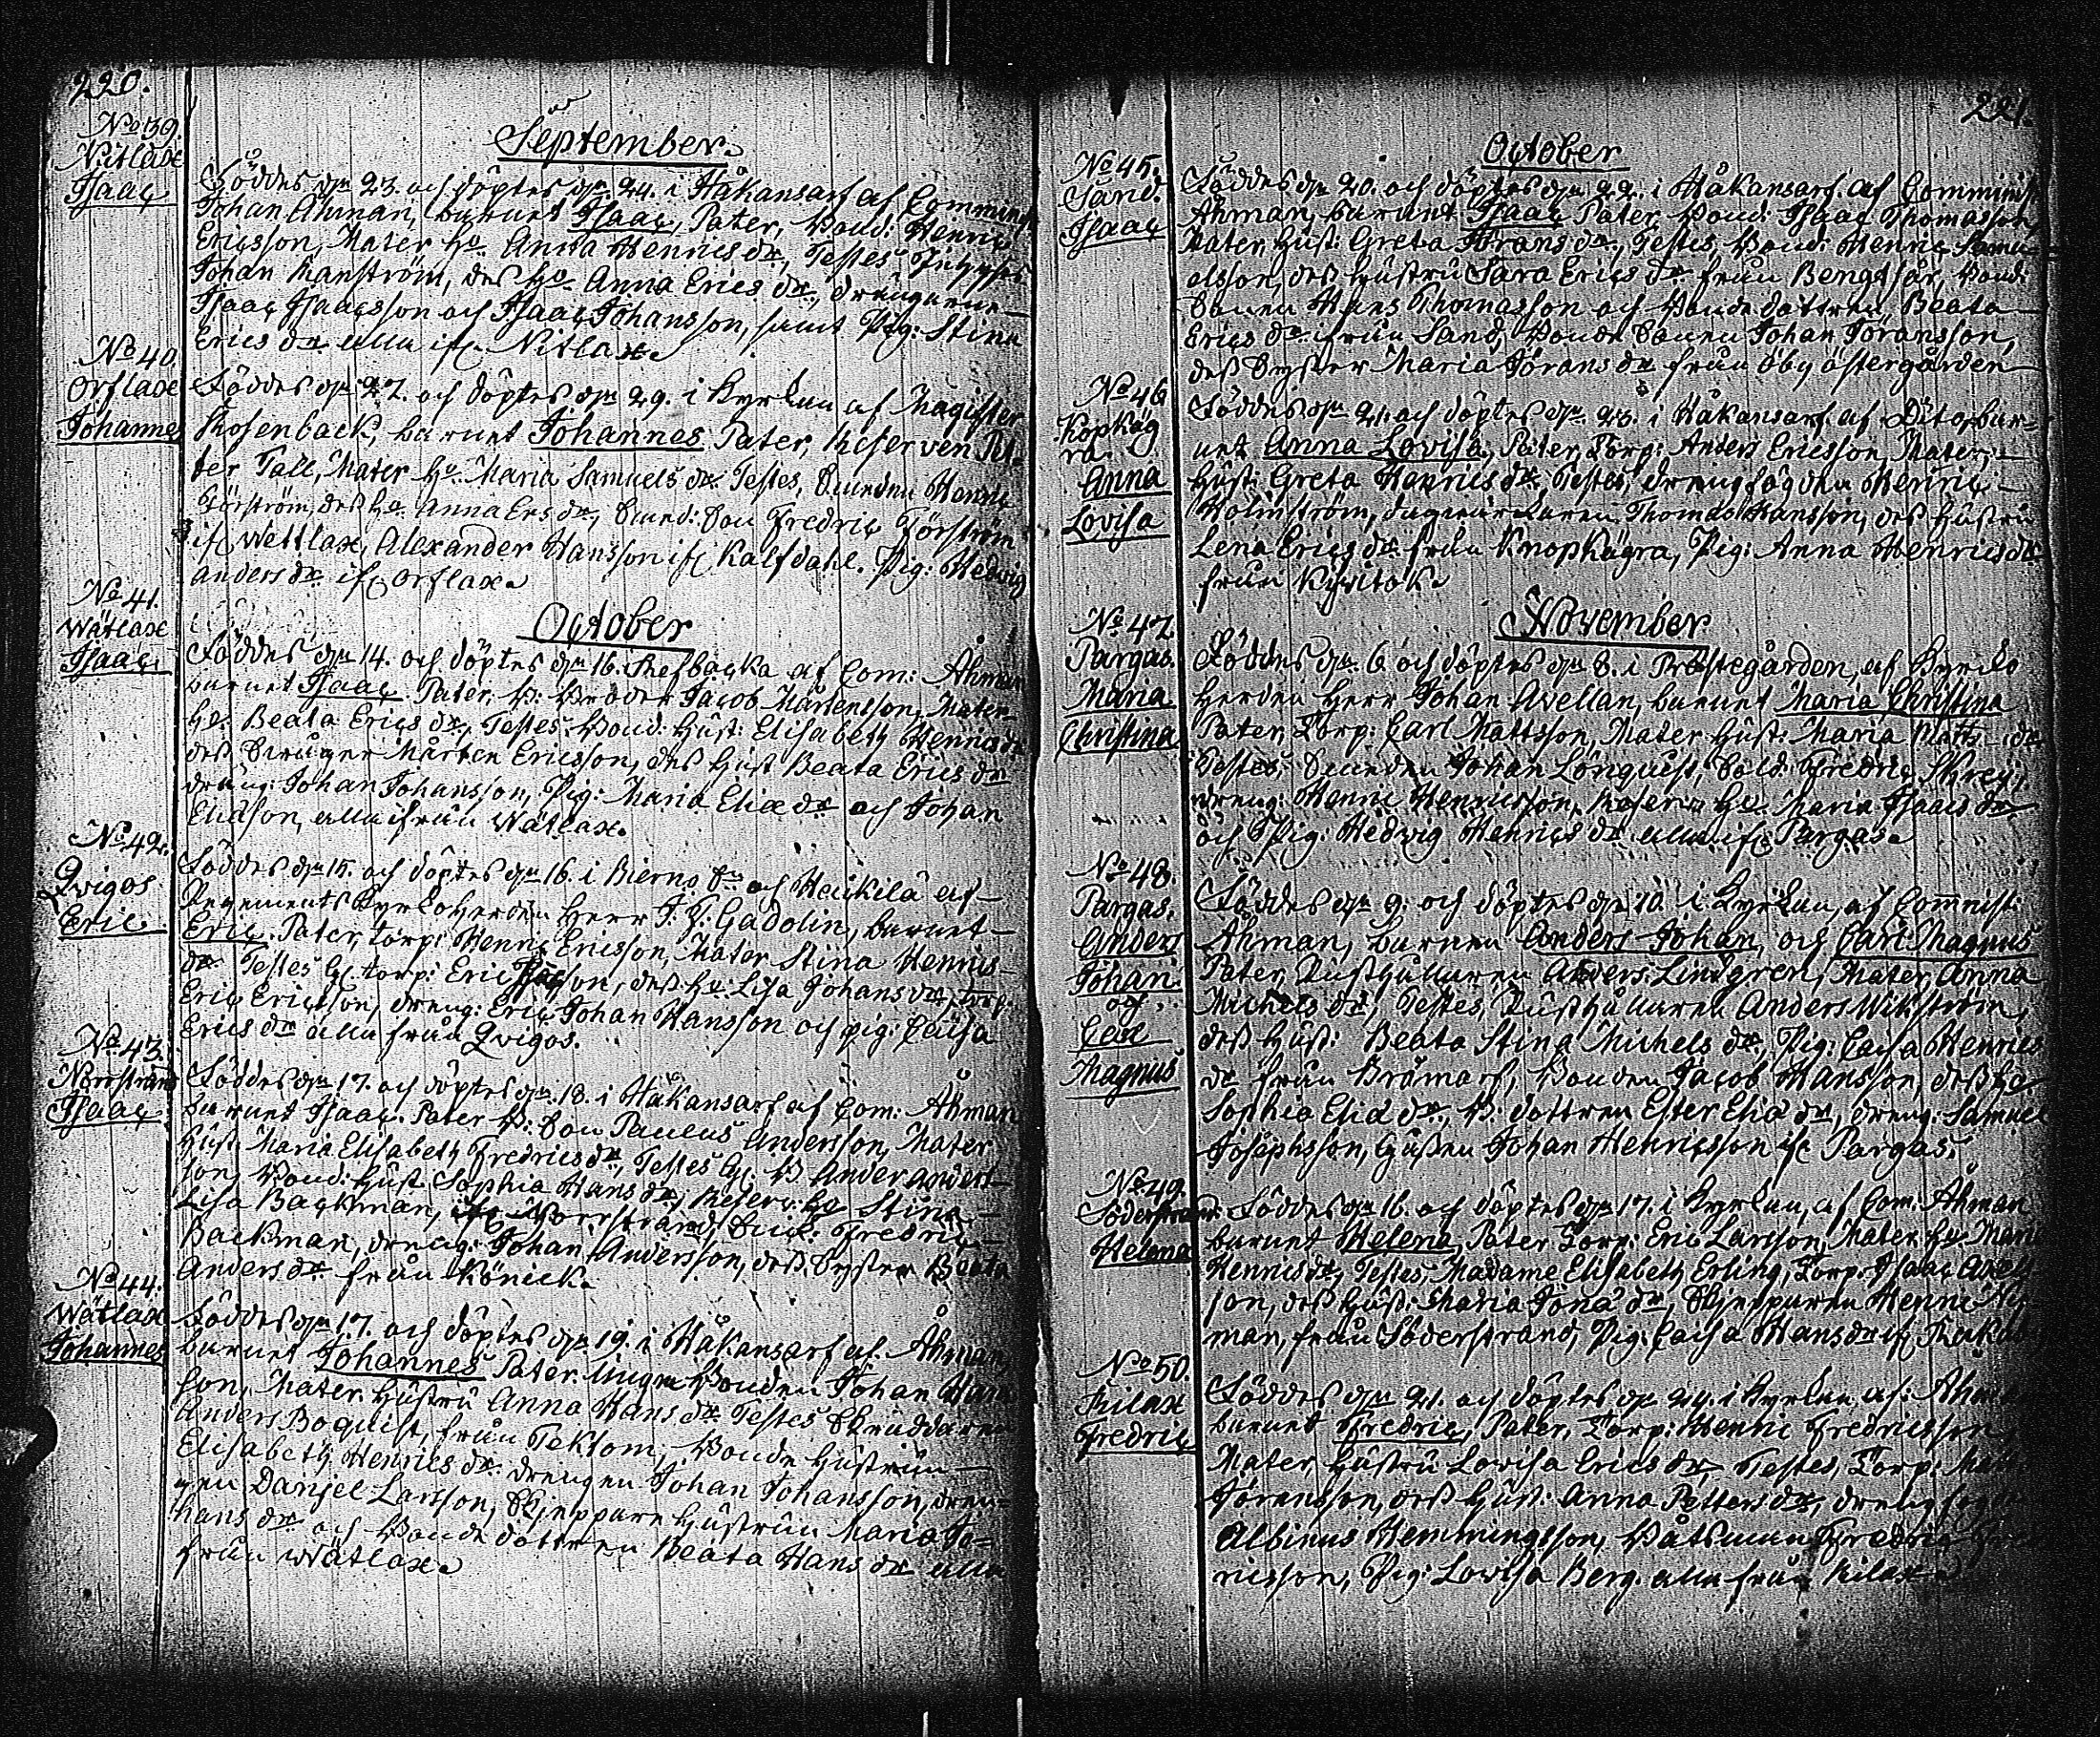 220.
September.
No 39.
Nitlax
Isaac
Föddes den 23. och döptes den 24. i Håkansarf af Comminist
Johan Åhman, barnet Isaac, Pater, Bond: Henric
Ericsson, Mater Hu. Anna Henrics dr, Testes
Johan Ranström, des hu. Anna Erics dr, drengarne
Isaac Isaacsson och Isaac Johansson, samt Pig: Stina
Erics dr alla ifr. Nitlax.
No 40.
Orslax
Johannes
Föddes den 27. och döptes den 29. i Kyrkan af Magister
Rosenback, barnet Johannes Pater, Reserven Pet-
ter Tall, Mater hu. Maria Samuels dr. Testes, Henric
Törström, des hu. Anna Ers dr, Son Fredric Törström
ifr Wettlax, Alexander Hansson ifr Kalfdahl. Pig: Hedvig
Anders dr. ifr Orslax.
October
No 41.
Wätlax
Isaac.
Föddes den 14. och döptes den 16. Refbacka af Com: Åhman
barnet Isaac Pater, B: Broder Jacob Mårtensson, Mater
hu. Beata Erics dr, Testes Bond: Hust: Elisabeth Henrics dr
des Swåger Mårten Ericsson, des Hust Beata Erics dr
dräng: Johan Johansson, Pig: Maria Eliæ dr och Johan
Eliason, alla ifrån Wätlax.
No 42.
Qvigos
Eric
Föddes den 15. och döptes den 16. i Bierno Sn och Heickilä af
Regements Kyrkoherden Herr J. G: Gadolin, barnet
Eric. Pater, torp: Henric Ericsson, Mater Stina Henrics
dr. Testes torp: Eric son, des hu Lisa Johans dr, torp:
Eric Ericsson, dreng: Eric Johan Hansson och pig: Caisa
Erics dr alla från Qvigos.
No 43.
Norrstrand
Isaac
Föddes den 17. och döptes den 18. i Håkansarf af Com: Åhman
barnet Isaac. Pater B: Son Paulus Andersson, Mater
Hust: Maria Elisabeth Fredrics dr, Testes B Ander Anders-
son, Bond: Hust Sophia Hans dr, Reserv: hu Stina
Lisa Backman, Norrstrand, Fredric
Backman, dreng: Johan Andersson, des Syster Beata
Anders dr från Könick.
No 44.
Wätlax
Johannes
Föddes den 17. och döptes den 19. i Håkansarf af Åhman,
barnet Johannes Pater Unga Bonden Johan Hans
son, Mater Hustru Anna Hans dr Testes Skräddaren
Anders Boquist, från Tektom, Bonde Hustrun
Elisabeth Henrics dr. drengen Johan Johansson, dren-
gen Danjel Larsson, Skjeppare Hustrun Maria Jo-
hans dr och Bonde dottren Beata Hans dr alla
från Wätlax.
221.
October
No 45.
Sand.
Isaac
Föddes den 20. och döptes den 22. i Håkansarf af Comminist
Åhman, barnet Isaac Pater, Bond: Isaac Thomasson,
Mater, Hust: Greta Jörans dr. Testes, Bond: Henric Samu-
elsson, des Hustru Sara Erics dr från Bengtsår, Bond:
Sonen Hans Thomasson och Bonde dottren Beata
Erics dr ifrån Sand, Bonde Sonen Johan Jöransson,
des Syster Maria Jörans dr från Öby östergården
No 46
Kopkäg
ra.
Anna
Lovisa
Föddes den 21. och döptes den 23. i Håkansarf af Dito, bar-
net Anna Lovisa, Pater, Torp: Anders Ericsson, Mater,
Hust: Greta Henrics dr. Testes, drengfogden Henric
Holmström, dagwärkaren Thomas Hansson, des Hustru
Lena Erics dr från Knopkägra, Pig: Anna Henrics dr
från Kiwitok.
November
No 47.
Pargas.
Maria
Christina
Föddes den 6 och döptes den 8. i Prästegården, af Kyrcko
herden Herr Johan Avellan, barnet Maria Christina
Pater, Torp: Carl Mattsson, Mater Hust: Maria Matts dr
Testes, Johan Lonquist, Sold: Fredric Skrey,
dreng: Henric Henricsson, Reserv: hu Maria Isaacs dr
och Pig: Hedvig Henrics dr alla ifr: Pargas.
No 48.
Pargas.
Anders
Johan
och
Carl
Magnus
Föddes den 9. och döptes den 10. i Kyrkan, af Commist:
Åhman, barnen Anders Johan, och Carl Magnus
Pater, Rusthållaren Anders Lindgren, Mater, Anna
Michels dr, Testes, Rusthållaren Anders Wikström,
des Hust: Beata Stina Michels dr, Pig: Caisa Henrics
dr från Bromarf, Bonden Jacob Hansson, des hu
Sophia Elia dr, B: dottren Ester Elia dr, dreng: Samuel
Josephsson, Gossen Johan Henricsson ifr Pargas.
No 49.
Söderstrand
Helena
Föddes den 16. och döptes den 17. i Kyrkan, af Com: Åhman
barnet Helena Pater Torp: Eric Larsson, Mater hu Mari
Henrics dr, Testes, Madame Elisabeth Erling, Torp: Isaac Axels
son, des Hust: Maria Jona dr, Skjepparen Henric Ny-
man, från Söderstrand, Pig: Caisa Hans dr ifr
No 50.
Kilax
Fredric
Föddes den 21. och döptes den 24. i Kyrkan af: Åhman
barnet Fredric, Pater, Torp: Henric Fredricsson,
Mater, Hustru Lovisa Erics dr, Testes, Torp:
Jöransson, des Hust: Anna Petters dr, drengfogden
Albinus Hemmingsson, Båtsman Fredric
ricsson, Pig: Lovisa Berg. alla från Kilax.